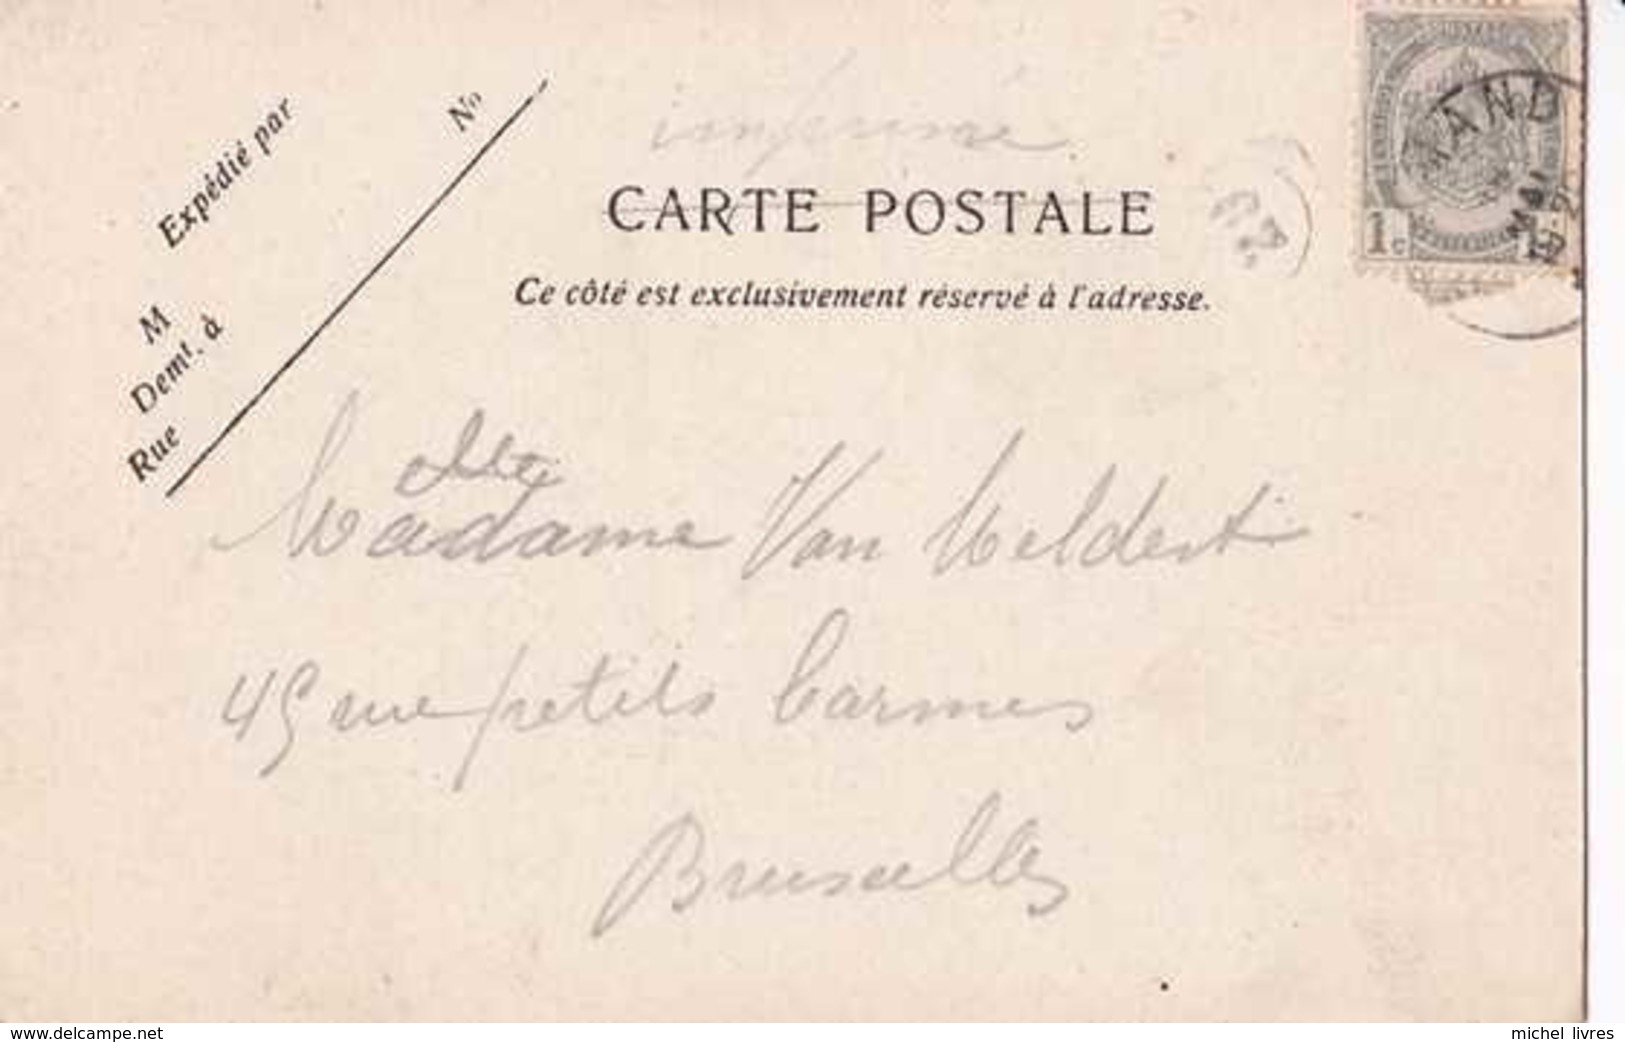 Expédié par
No
M
Demt. à
Rue
imprimé
CARTE POSTALE
Ce côté est exclusivement réservé à l'adresse.
1c
AND
MAI
elle
Madame Van Meldert
45 rue petits Carmes
Bruxelles
www.delcampe.net
michel_livres